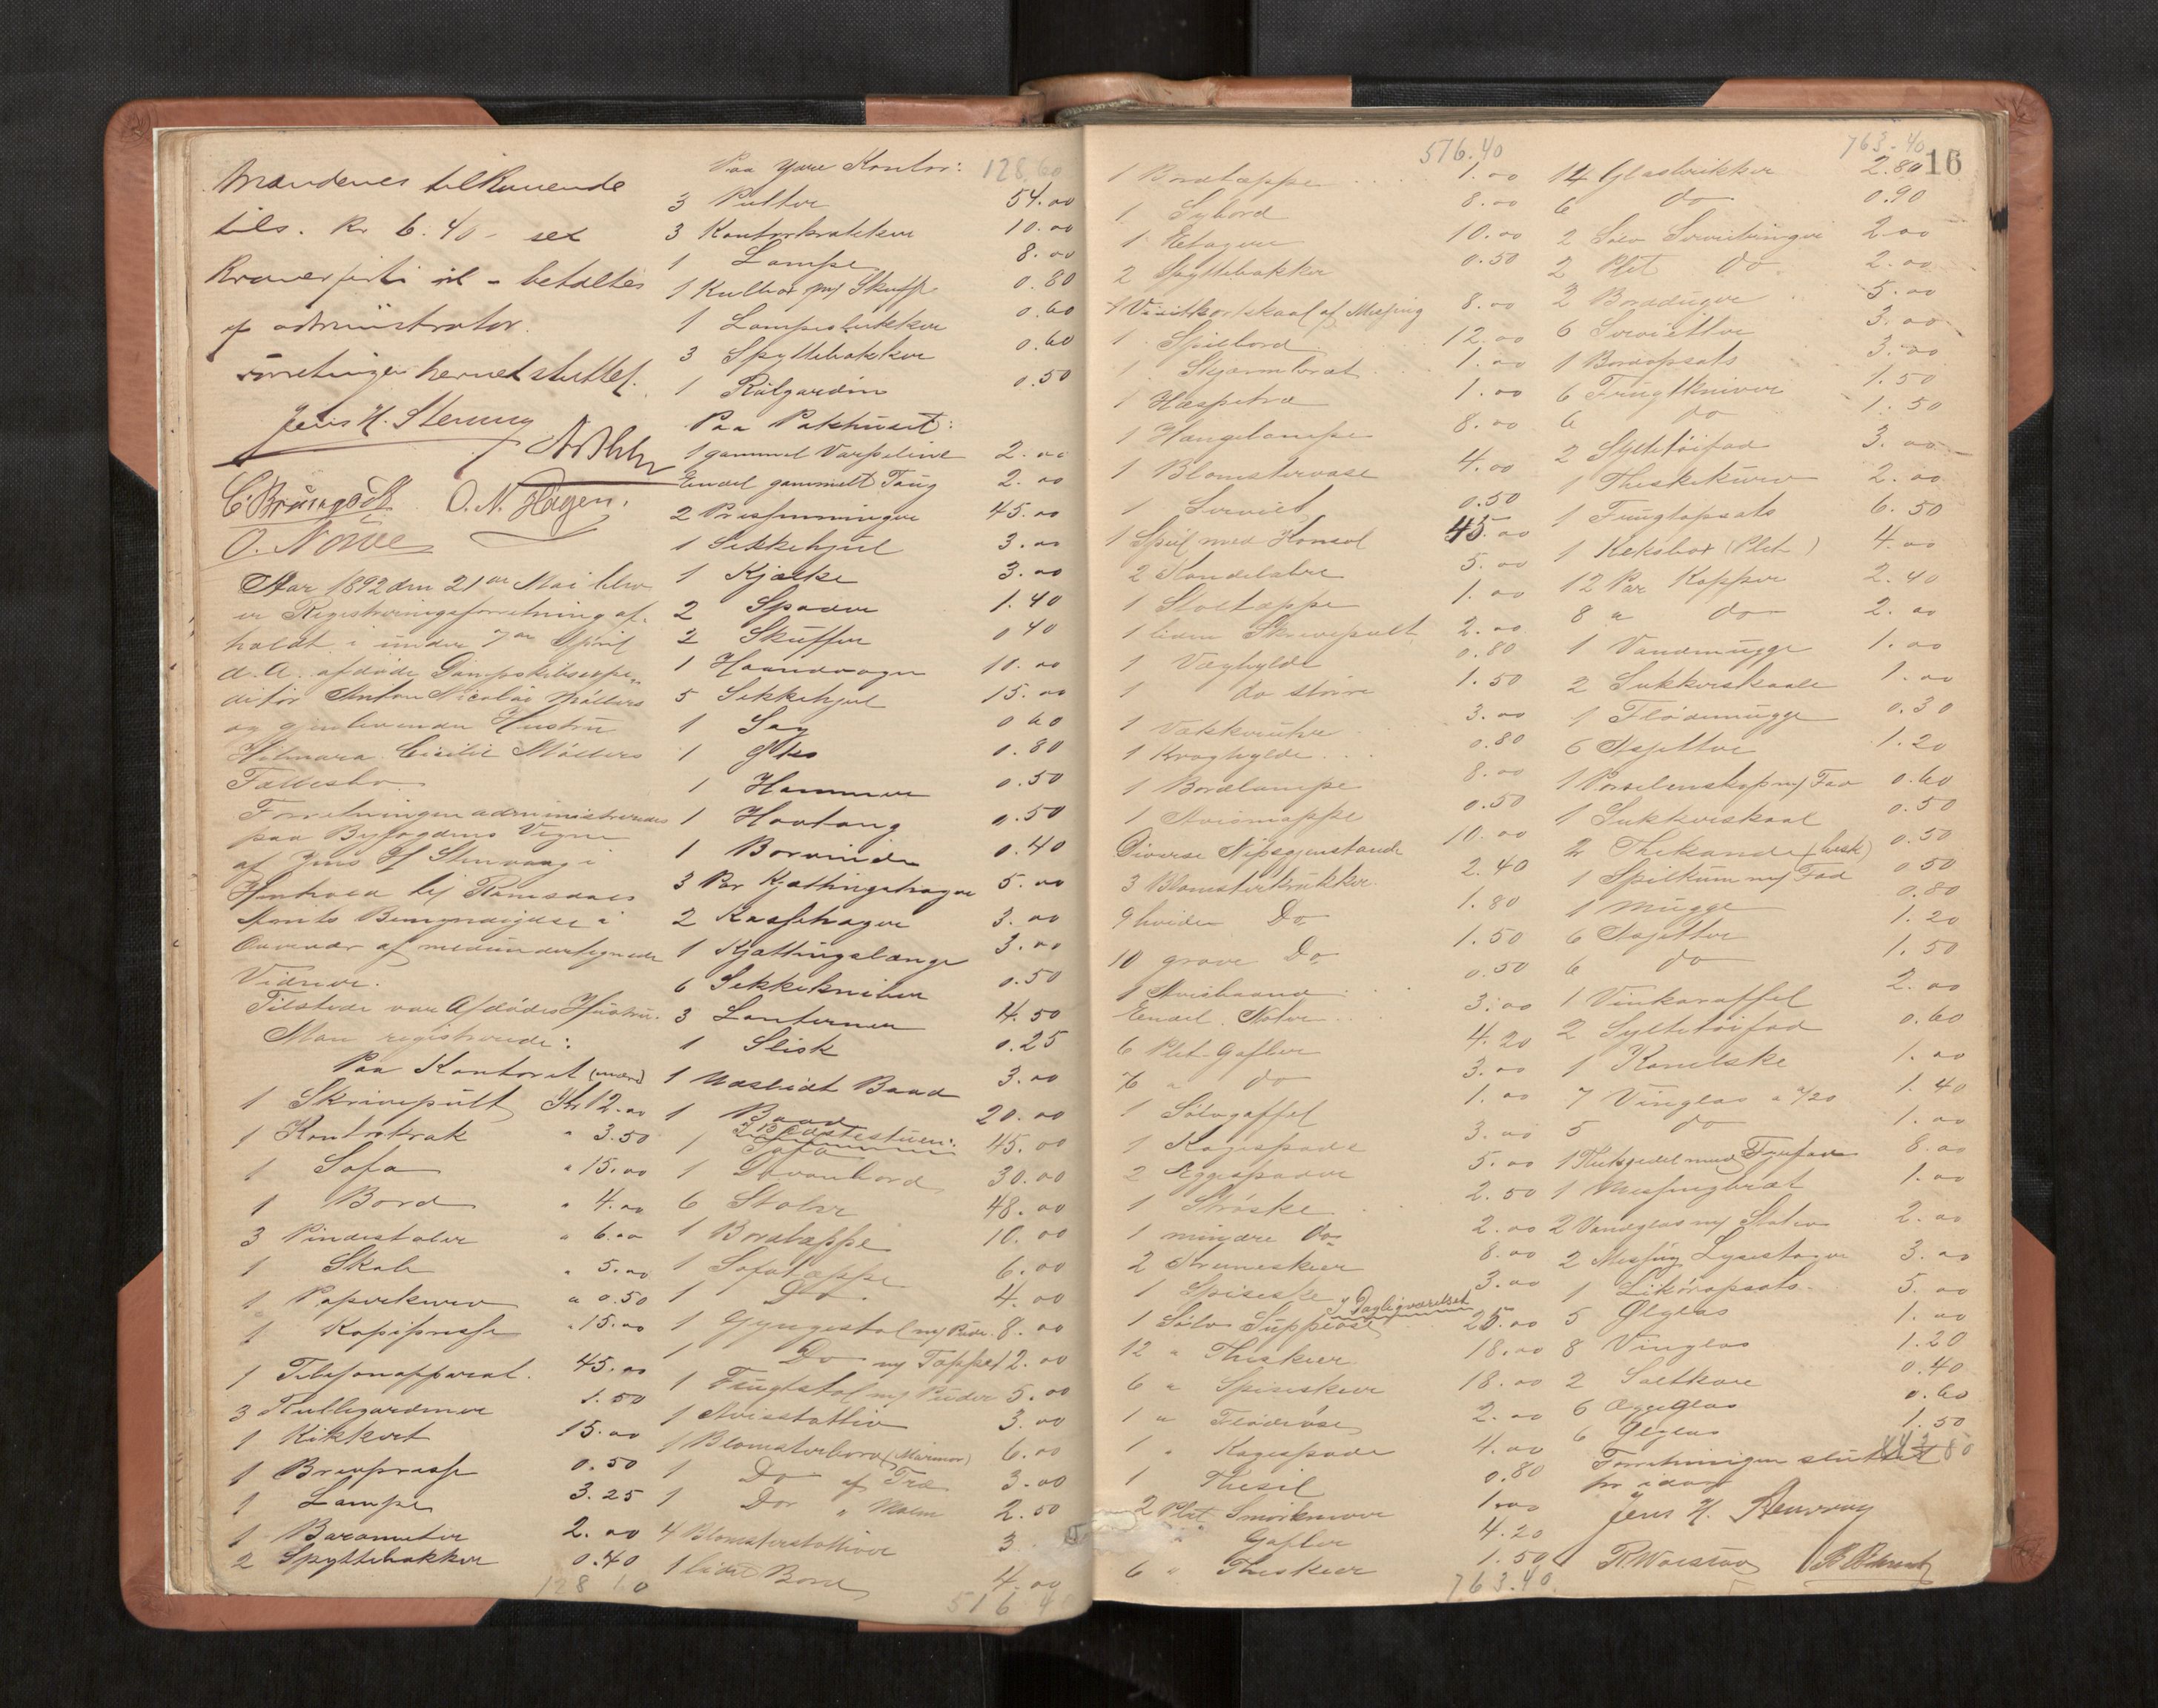 Mændenes tilkommende
tils. Kr 6.40 - sex
Kroner førti øre - betaltes
af administrator.
Forretningen hermed sluttet.
Jens H.
O. N. Hagen.
Aar 1892 den 21de Mai blev
en Registreringsforretning af-
holdt i under 7de April
d. A. afdøde Dampskibsexpe-
ditør Anton Nicolai Møllers
og gjenlevende Hustru
Hilmara Cecilie Møllers
Fællesbo.
Forretningen administreredes
paa Byfogdens Vegne
af Jens H
Henhold til Romsdals
Amts Bemyndigelse i
Overvær af medundertegnede
Vidner.
Tilstede var Afdødes Hustru.
Man registrerede:
Paa Kontoret
1 Skrivepult Kr 12.00
1 Kontorkrak " 3.50
1 Sofa " 15.00
1 Bord " 4.00
3 Pindestoler " 6.00
1 Skab " 5.00
1 Papirkurv " 0.50
1 Kopipresse " 15.00
1 Telefonapparat. 45.00
3 Rullegardiner 1.50
1 Kikkert 15.00
1 Brevpresse 0.50
1 Lampe 3.25
1 Barometer 2.00
2 Spyttebakker 0.40
128 60
Paa ydre Kontor: 128.60
3 Pulter 54.00
3 Kontorkrakker 10.00
1 Lampe 8.00
1 Kulbox m/ Skuffe 0.80
1 Lampelukker 0.60
3 Spyttebakker 0.60
1 Rulgardin 0.50
Paa Pakhuset:
1 gammel Varpeline 2.00
Endel gammelt Taug 2.00
2 Presenninger 45.00
1 Sekkehjul 3.00
1 Kjælke 3.00
2 Spader 1.40
2 Skuffer 0 40
1 Haandvogn 10.00
5 Sekkehjul 15.00
1 Sag 0 60
1 Øks 0.80
1 Hammer 0.50
1 Hovtang 0.50
1 Borvinde 0.40
3 Par Kjættingshager 5.00
2 Kassehager 3.00
1 Kjættingslænge 3.00
6 Sekkekniber 0.50
3 Lanterner 4.50
1 Slisk 0.25
1 Udslidt Baad 3.00
1 Baad 20.00
I Bedstestuen:
1 Sofa 45.00
1 Divanbord 30.00
6 Stoler 48.00
1 Bordtæppe 10.00
1 Sofatæppe 6.00
1 Do. 4.00
1 Gyngestol m/ Pude 8.00
1 Do m/ Tæppe 12.00
1 Frugtstol m/ Puder 5.00
1 Avisstativ 3.00
1 Blomsterbord (Marmor) 6.00
1 Do af Træ 3.00
1 Do " Malm 2.50
4 Blomsterstativer 3
1 lidet Bord 4.00
576 40
576.40
1 Bordtæppe 1.00
1 Sybord 8.00
1 Etagere 10.00
2 Spyttebakker 0.50
1 Visitkortskaal af Messing 8.00
1 Spilbord 12.00
1 Skjærmbræt 1.00
1 Haspetræ 1.00
1 Hængelampe 8.00
1 Blomstervase 4.00
1 Serviet 0.50
1 Speil med Konsol 45.00
2 Kandelabre 5.00
1 Stoltæppe 1.00
1 liden Skrivepult 2.00
1 Væghylde 0.80
1 do større 1.50
1 Vækkeruhr 3.00
1 Kroghylde 0.80
1 Bordlampe 8.00
1 Avismappe 0.50
Diverse Nipsgjenstande 10.00
3 Blomsterkrukker 2.40
9 hvide Do 1.80
10 grove Do 1.50
1 Avisbaand 0.50
Endel Noter 3.00
6 Plet Gafler 4.20
6 " do 3.00
1 Sølvgaffel 1.00
1 Kagespade 3.00
2 Æggespader 5.00
1 Strøske 2.50
1 mindre do 2.00
2 8.00
1 Spiseske 3.00
I Dagligværelset
1 Sølv Suppeøse 25.00
12 " Theskeer 18.00
6 " Spiseskeer 18.00
1 " Flødeøse 2.00
1 " Kagespade 4.00
1 Thesil 0.80
2 Plet Smørknive 1.00
Gafler 4.20
6 " Theskeer 1.50
763.40
763.40
16
14 Glasbrikker 2.80
6 do 0.90
2 Sølv Servietringe 2.00
2 Plet do 2.00
2 Bordduger 5.00
6 Servietter 3.00
1 Bordopsats 3.00
6 Frugtkniver 1.50
6 do 1.50
2 Syltetøifad 3.00
1 Theskekurv 2.00
1 Frugtopsats 6.50
1 Keksbox (Plet) 4.00
12 Par Kopper 2.40
8 " do 2.00
1 Vandmugge 1.00
2 Sukkerskaale 1.00
1 Flødemugge 0.30
6 Asjetter 1.20
1 Porselenskop m/ Fad 0.60
1 Sukkerskaal 0.50
2 Thekande (besk) 0.50
1 Spilkum m/ Fad 0 50
1 Mugge 0.80
6 Asjetter 1.20
6 do 1.50
1 Vinkaraffel 2.00
2 Syltetøifad 0.60
1 Kanelske 1.00
7 Vinglas a /20 1.40
5 do 1.00
1 Thekjedel med Fyrfad 8.00
1 Messingbræt 1.00
2 Vandglas m/ Stativ 2.00
2 Messing Lysestager 3.00
1 Likøropsats 5.00
5 Ølglas 1.00
8 Vinglas 1.20
2 Saltkar 0.40
6 Æggeglas 0.60
6 Ølglas 1.50
Forretningen sluttet
for idag
Jens H.